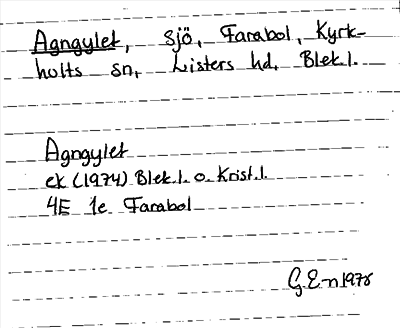 Agngylet, sjö, Farabol, Kyrk-
hults sn, Listers hd, Blek.l.
Agngylet
ek (1974) Blek.l. o. Krist.l.
4E 1e Farabol
G.E-n 1978